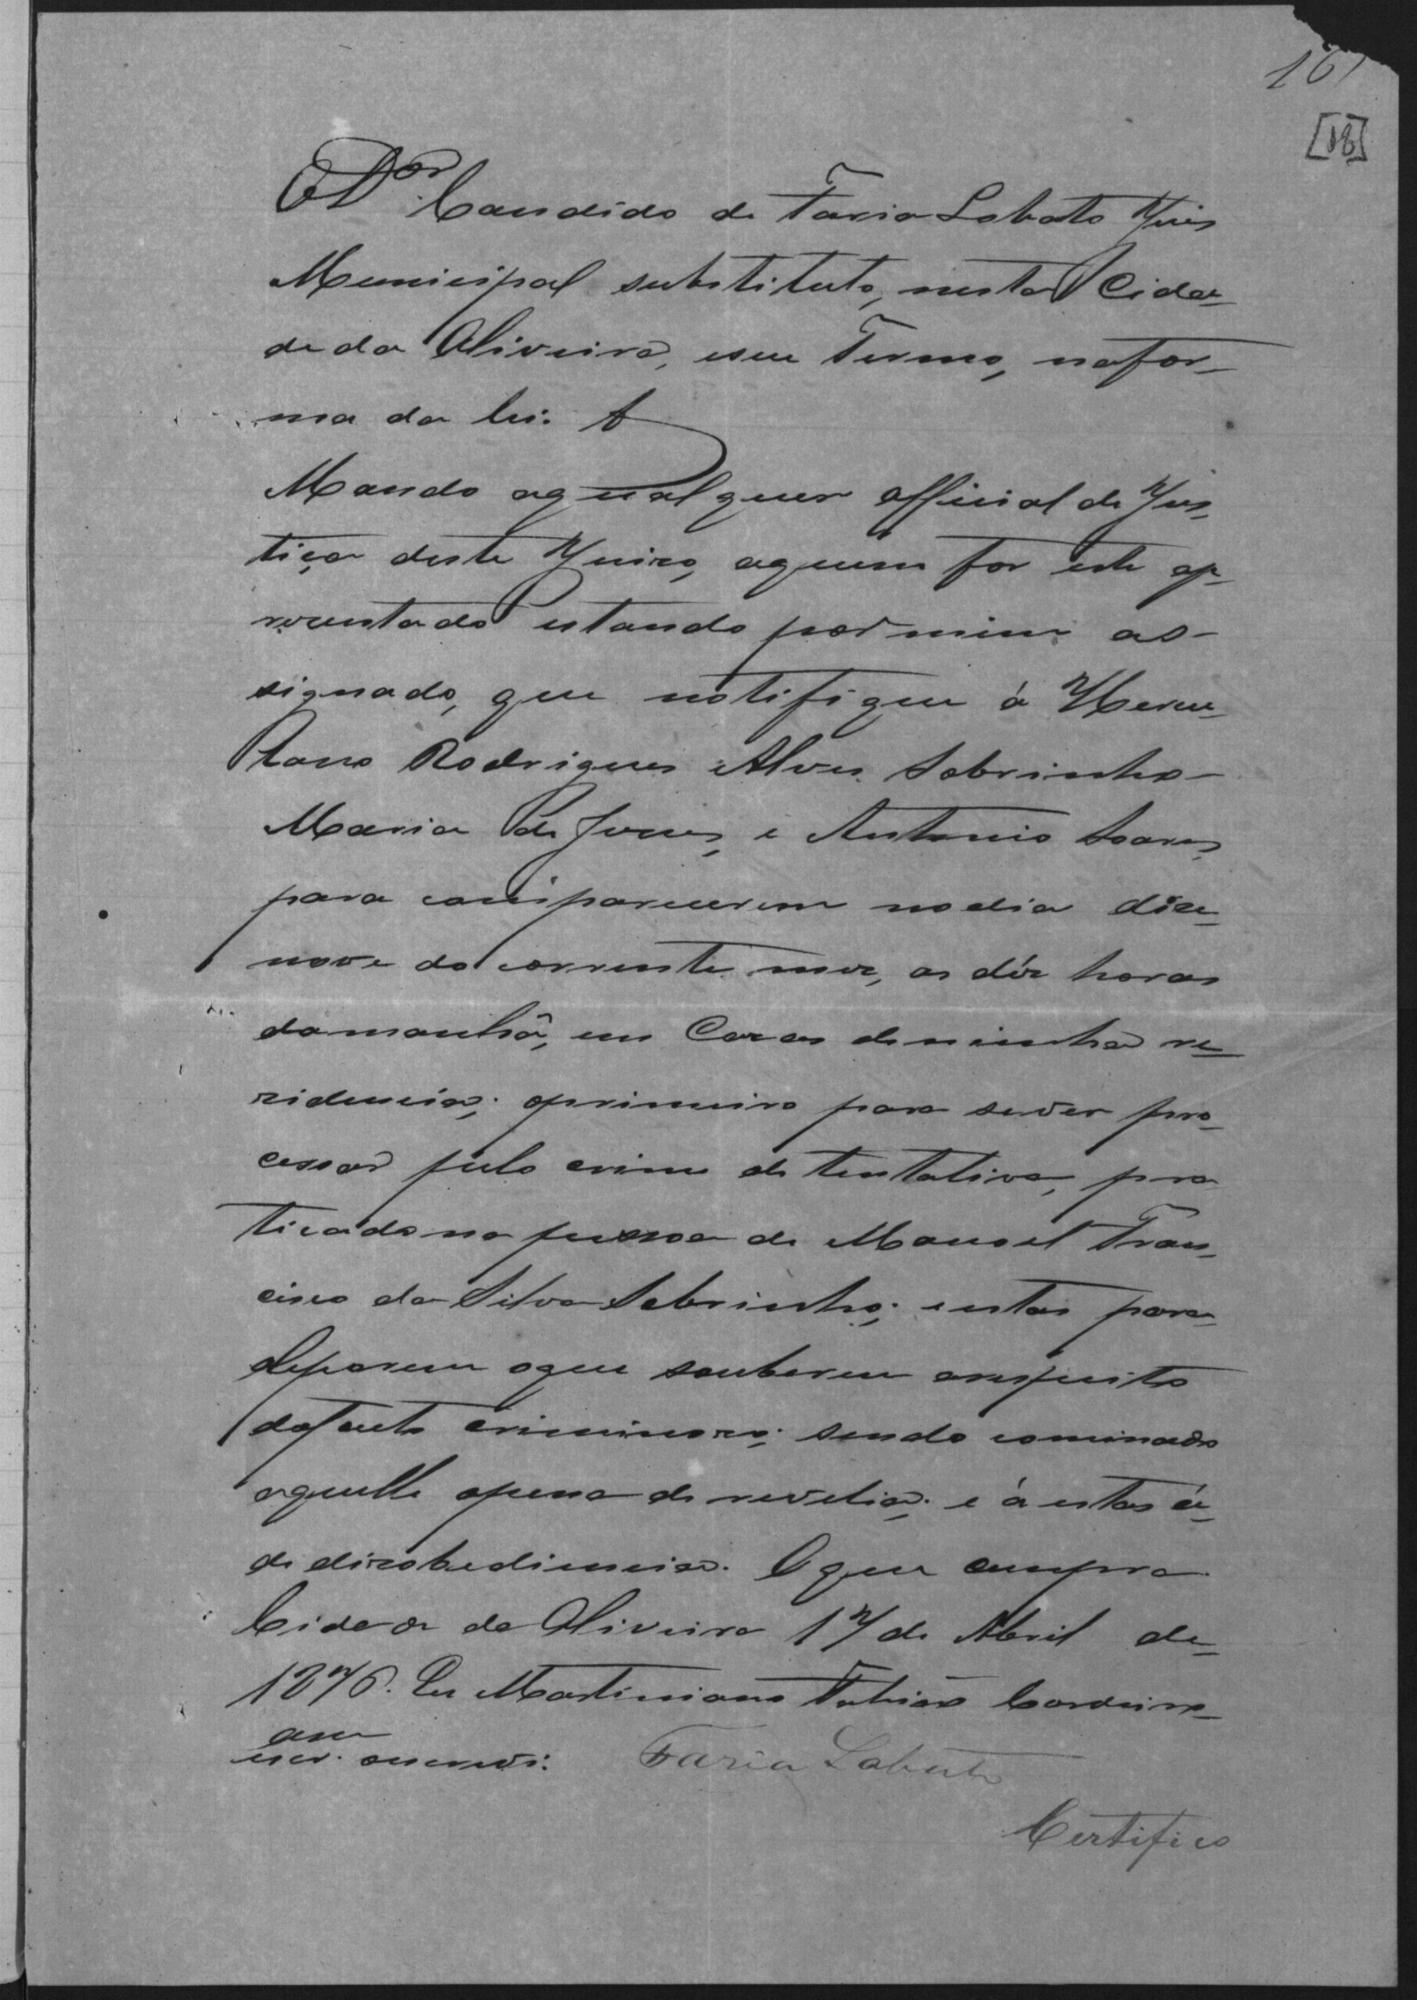 161
[18]
O Dor. Candido de Faria Lobato Juis
Municipal substituto, nesta Cida-
de da Oliveira, e seu Termo, na for-
ma da lei. &
Mando a qualquer official de Jus-
tiça deste Juizo, a quem for este ap-
rezentado estando por mim as-
signado, que notifique á Hercu-
lano Rodrigues Alves Sobrinho
Maria de Jesus, e Antonio Soares,
para comparecerem no dia deze-
nove do corrente mez, as déz horas
da manhã, em Caza de minha re-
zidencia; o primeiro para se ver pro-
cessar pelo crime de tentativa, pra
ticado na pessoa de Manoel Fran-
cisco da Silva Sobrinho; e estas para
deporem o que souberem a respeito
do facto criminozo; sendo cominado
aquelle a pena de revelia; e á estas á
de dizobediencia. O que cumpra.
Cidade de Oliveira 17 de Abril de
1876. Eu Martiniano Cordeiro
escr. que escrevi.
Faria Lobato
Certifico